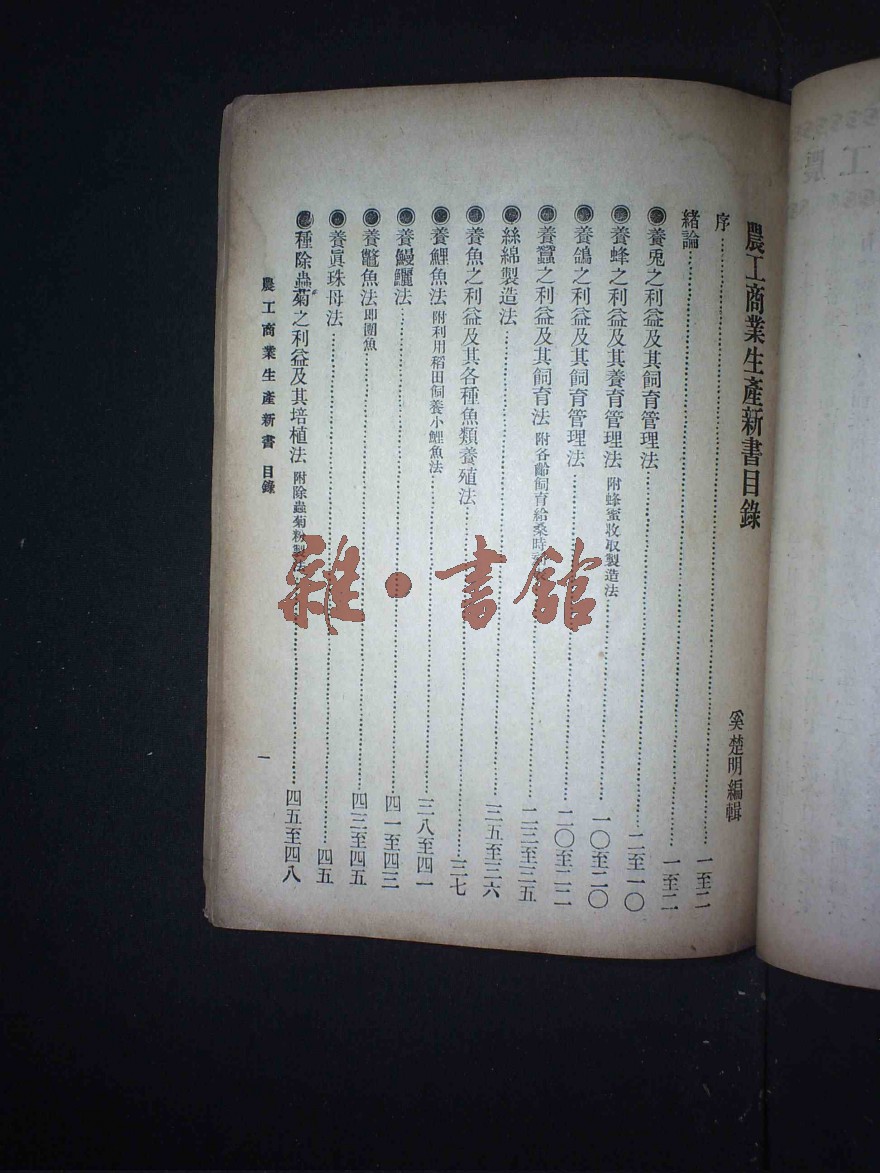 農工商業生產新書目錄
奚楚明編輯
序 一至二
緒論 一至二
養兎之利益及其飼育管理法 二至一〇
養蜂之利益及其養育管理法 附蜂蜜收取製造法 一〇至二〇
養鴿之利益及其飼育管理法 二〇至二二
養蠶之利益及其飼育法 附各齡飼育給桑時 二三至三五
絲綿製造法 三五至三六
養魚之利益及其各種魚類養殖法 三七
養鯉魚法 附利用稻田飼養小鯉魚法 三八至四一
養鰻鱺法 四一至四三
養鼈魚法 即團魚 四三至四五
養眞珠母法 四五
種除蟲菊之利益及其培植法 附除蟲菊粉製法 四五至四八
農工商業生產新書 目錄
一
雜·書館